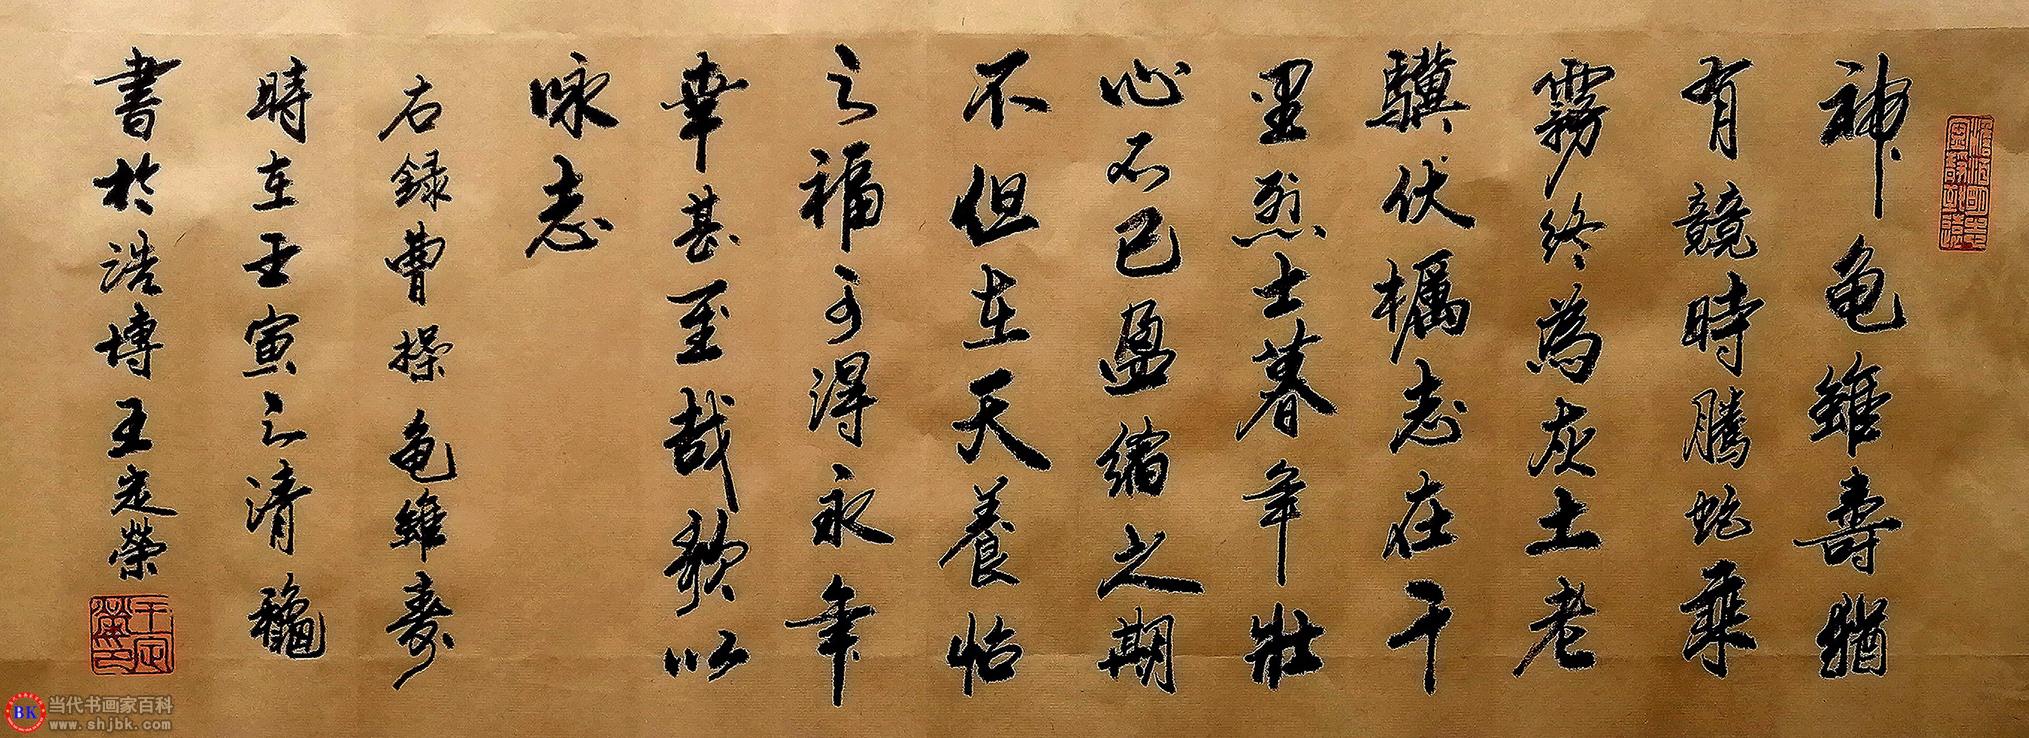 神龟雖壽猶
有競時騰蛇乘
霧終為灰土老
驥伏櫪志在千
里烈士暮年壯
心不已盈縮之期
不但在天養怡
之福可得永年
幸甚至哉歌以
咏志
右録曹操龟雖壽
時在壬寅之清穐
書於浩博王定榮
王定榮印
BK
当代书画家百科
www.shjbk.com